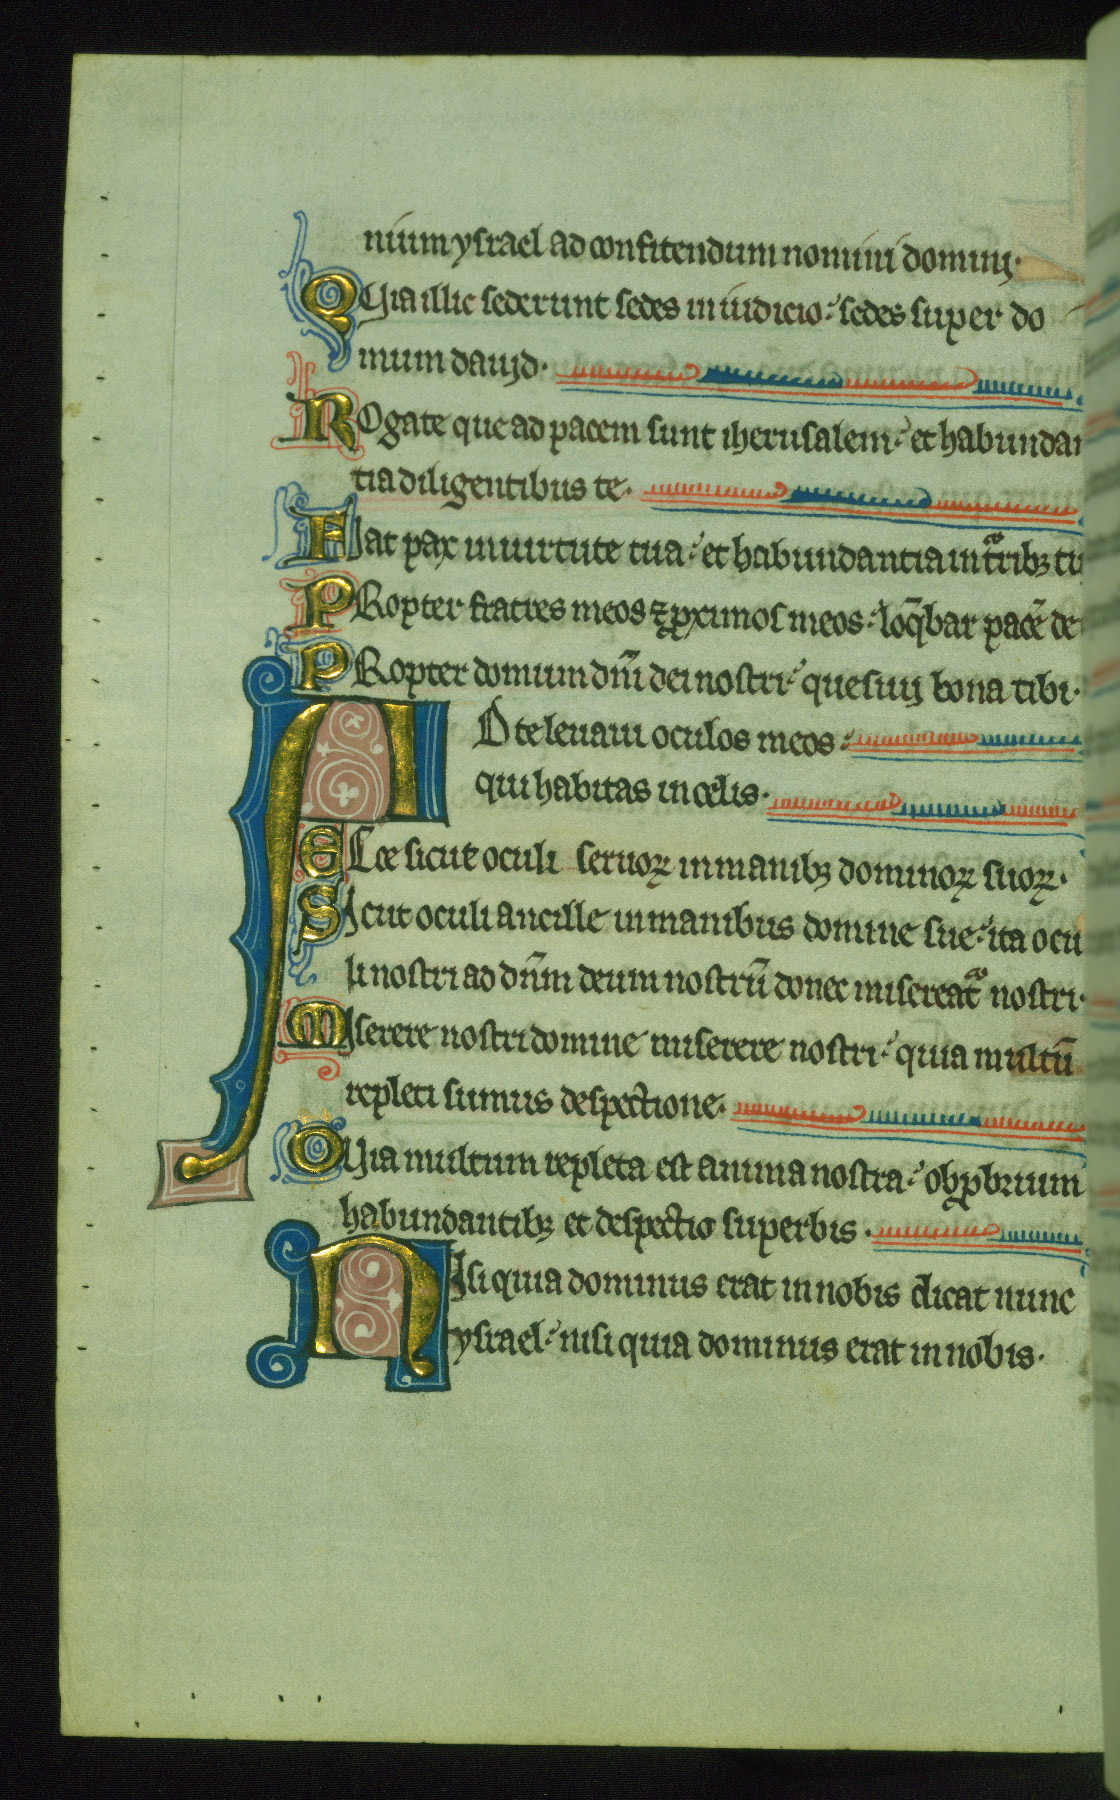 nium ysrael ad confitendum nomini domini.
QUia illic sederunt sedes in iudicio: sedes super do
mum dauid.
ROgate que ad pacem sunt iherusalem: et habundan
tia diligentibus te.
FIat pax in uirtute tua: et habundantia in t͛rib; tu
PRopter fratres meos ⁊ ꝓximos meos: loq̄bar pacē de
PRopter domum dn̄i dei nostri: quesiuj bona tibi.
AD te leuaui oculos meos:
qui habitas in celis.
ECce sicut oculi seruoꝝ in manib; dominoꝝ suoꝝ.
SIcut oculi ancille in manibus domine sue: ita ocu
li nostri ad dn̄m deum nostrū donec misereat͛ nostri.
MIserere nostri domine miserere nostri: quia multū
repleti sumus despectione.
QUia multum repleta est anima nostra: obꝓbrium
habundantib; et despectio superbis.
NIsi quia dominus erat in nobis dicat nunc
ysrael: nisi quia dominus erat in nobis.